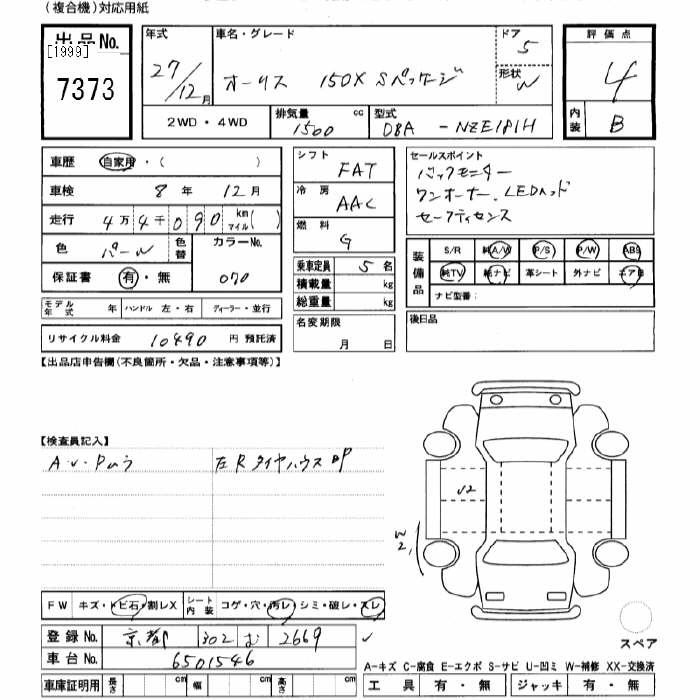 (複合機)対応用紙
出品No. [1999] 7373
年式 27/12月
車名・グレード オーリス 150X Sパッケージ
ドア 5
形状 W
評価点 4
内装 B
2WD・4WD
排気量 1500 cc
型式 DBA - NZE181H
車歴 自家用・( )
車検 8年 12月
走行 4万4千090 km マイル( )
色 パール 色替 カラーNo. 070
保証書 有・無
モデル年式 年 ハンドル 左・右 ディーラー・並行
リサイクル料金 10490 円 預託済
シフト FAT
冷房 AAC
燃料 G
乗車定員 5名
積載量 kg
総重量 kg
名変期限 月 日
セールスポイント
バックモニター
ワンオーナー LEDヘッド
セーフティセンス
装備品 S/R 純A/W P/S P/W ABS
純TV 純ナビ 革シート 外ナビ エアB
ナビ型番:
後日品
【出品店申告欄(不良箇所・欠品・注意事項等)】
【検査員記入】
A・U・Pあり
左Rタイヤハウス凹P
U2
W2
FW キズ・トビ石・割レX シート内装 コゲ・穴・汚レ・シミ・破レ・スレ
登録No. 京都 302 む 2669
車台No. 6501546
車庫証明用 長さ cm 幅 cm 高さ cm
スペア
A-キズ C-腐食 E-エクボ S-サビ U-凹ミ W-補修 XX-交換済
工具 有・無 ジャッキ 有・無